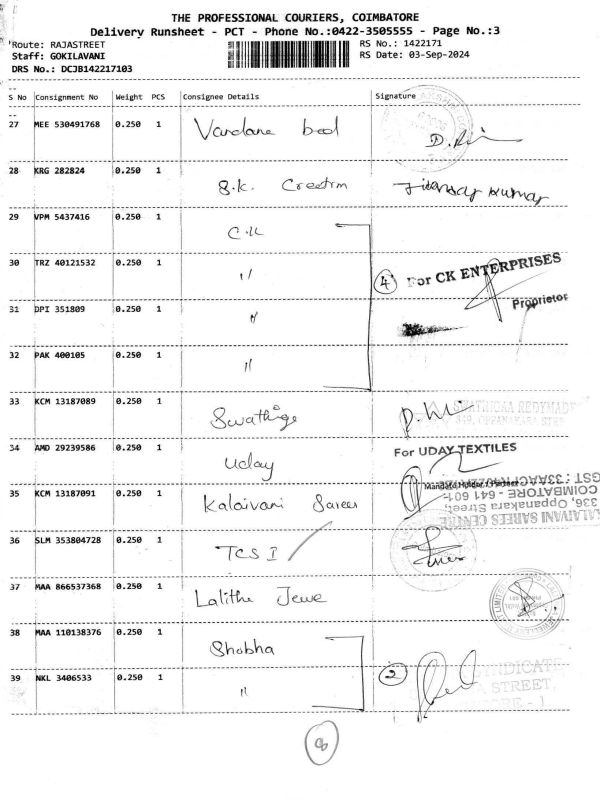 THE PROFESSIONAL COURIERS, COIMBATORE
Delivery Runsheet - PCT - Phone No.:0422-3505555 - Page No.:3
Route: RAJASTREET RS No.: 1422171
Staff: GOKILAVANI RS Date: 03-Sep-2024
DRS No.: DCJB142217103
S No Consignment No Weight PCS Consignee Details Signature
27 MEE 530491768 0.250 1 Vandana bed
28 KRG 282824 0.250 1 S.K. Kumar
29 VPM 5437416 0.250 1 C.K
30 TRZ 40121532 0.250 1 " 4 For CK ENTERPRISES
Proprietor
31 DPI 351809 0.250 1 "
32 PAK 400105 0.250 1 "
33 KCM 13187089 0.250 1 Swathige
34 AMD 29239586 0.250 1 Uday For UDAY TEXTILES
35 KCM 13187091 0.250 1 Kalaivani Sarees
336, Oppanakara Street,
COIMBATORE - 641 601.
KALAIVANI SAREES CENTRE
36 SLM 353804728 0.250 1 TCS I
37 MAA 866537368 0.250 1 Lalitha Jewe
38 MAA 110138376 0.250 1 Shobha
39 NKL 3406533 0.250 1 " 2 SYNDICATE
STREET,